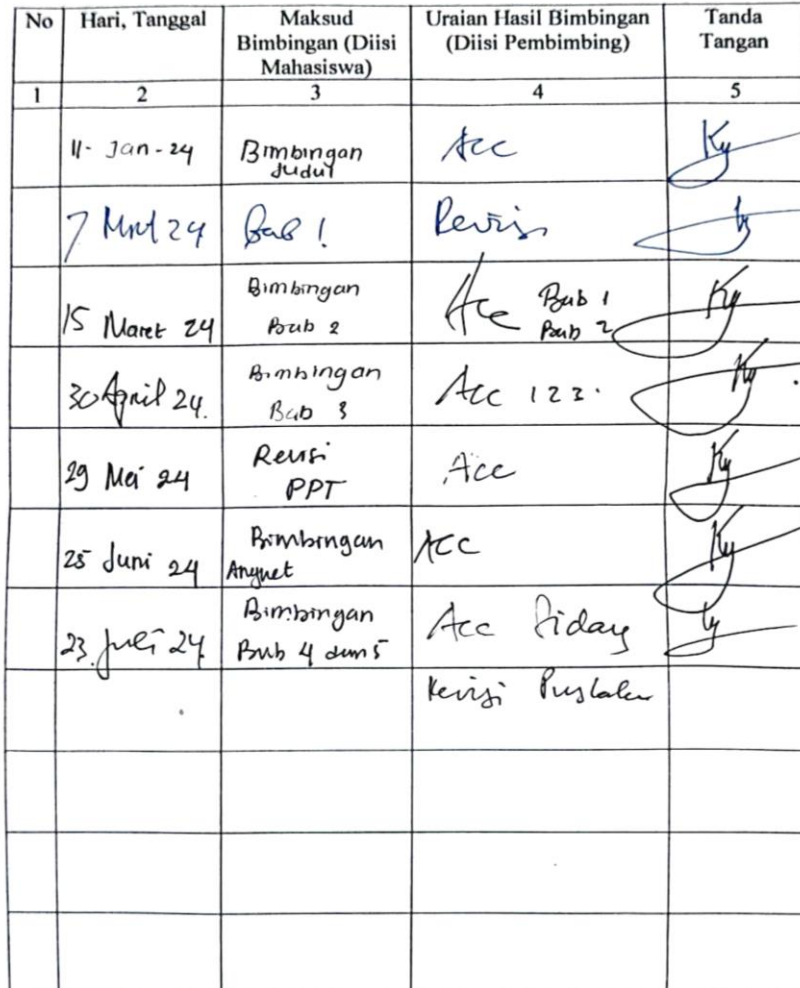 No Hari, Tanggal Maksud Bimbingan (Diisi Mahasiswa) Uraian Hasil Bimbingan (Diisi Pembimbing) Tanda Tangan
1 2 3 4 5
11- Jan-24 Bimbingan Judul Acc
7 24 Bab 1 Revisi
15 Maret 24 Bimbingan Bab 2 Acc Bab 1 Bab 2
30 April 24. Bimbingan Bab 3 Acc 1 2 3.
29 Mei 24 Revisi PPT Acc
25 Juni 24 Bimbingan ACC
23. Juli 24 Bimbingan Bab 4 dan 5 Acc Sidang
Revisi